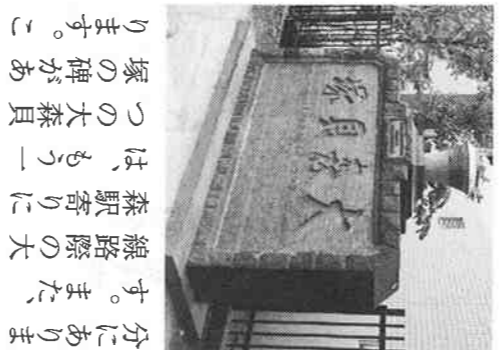 大森貝塚
分にありま
す。また、
線路際の大
森駅寄りに
は、もう一
つの大森貝
塚の碑があ
ります。こ